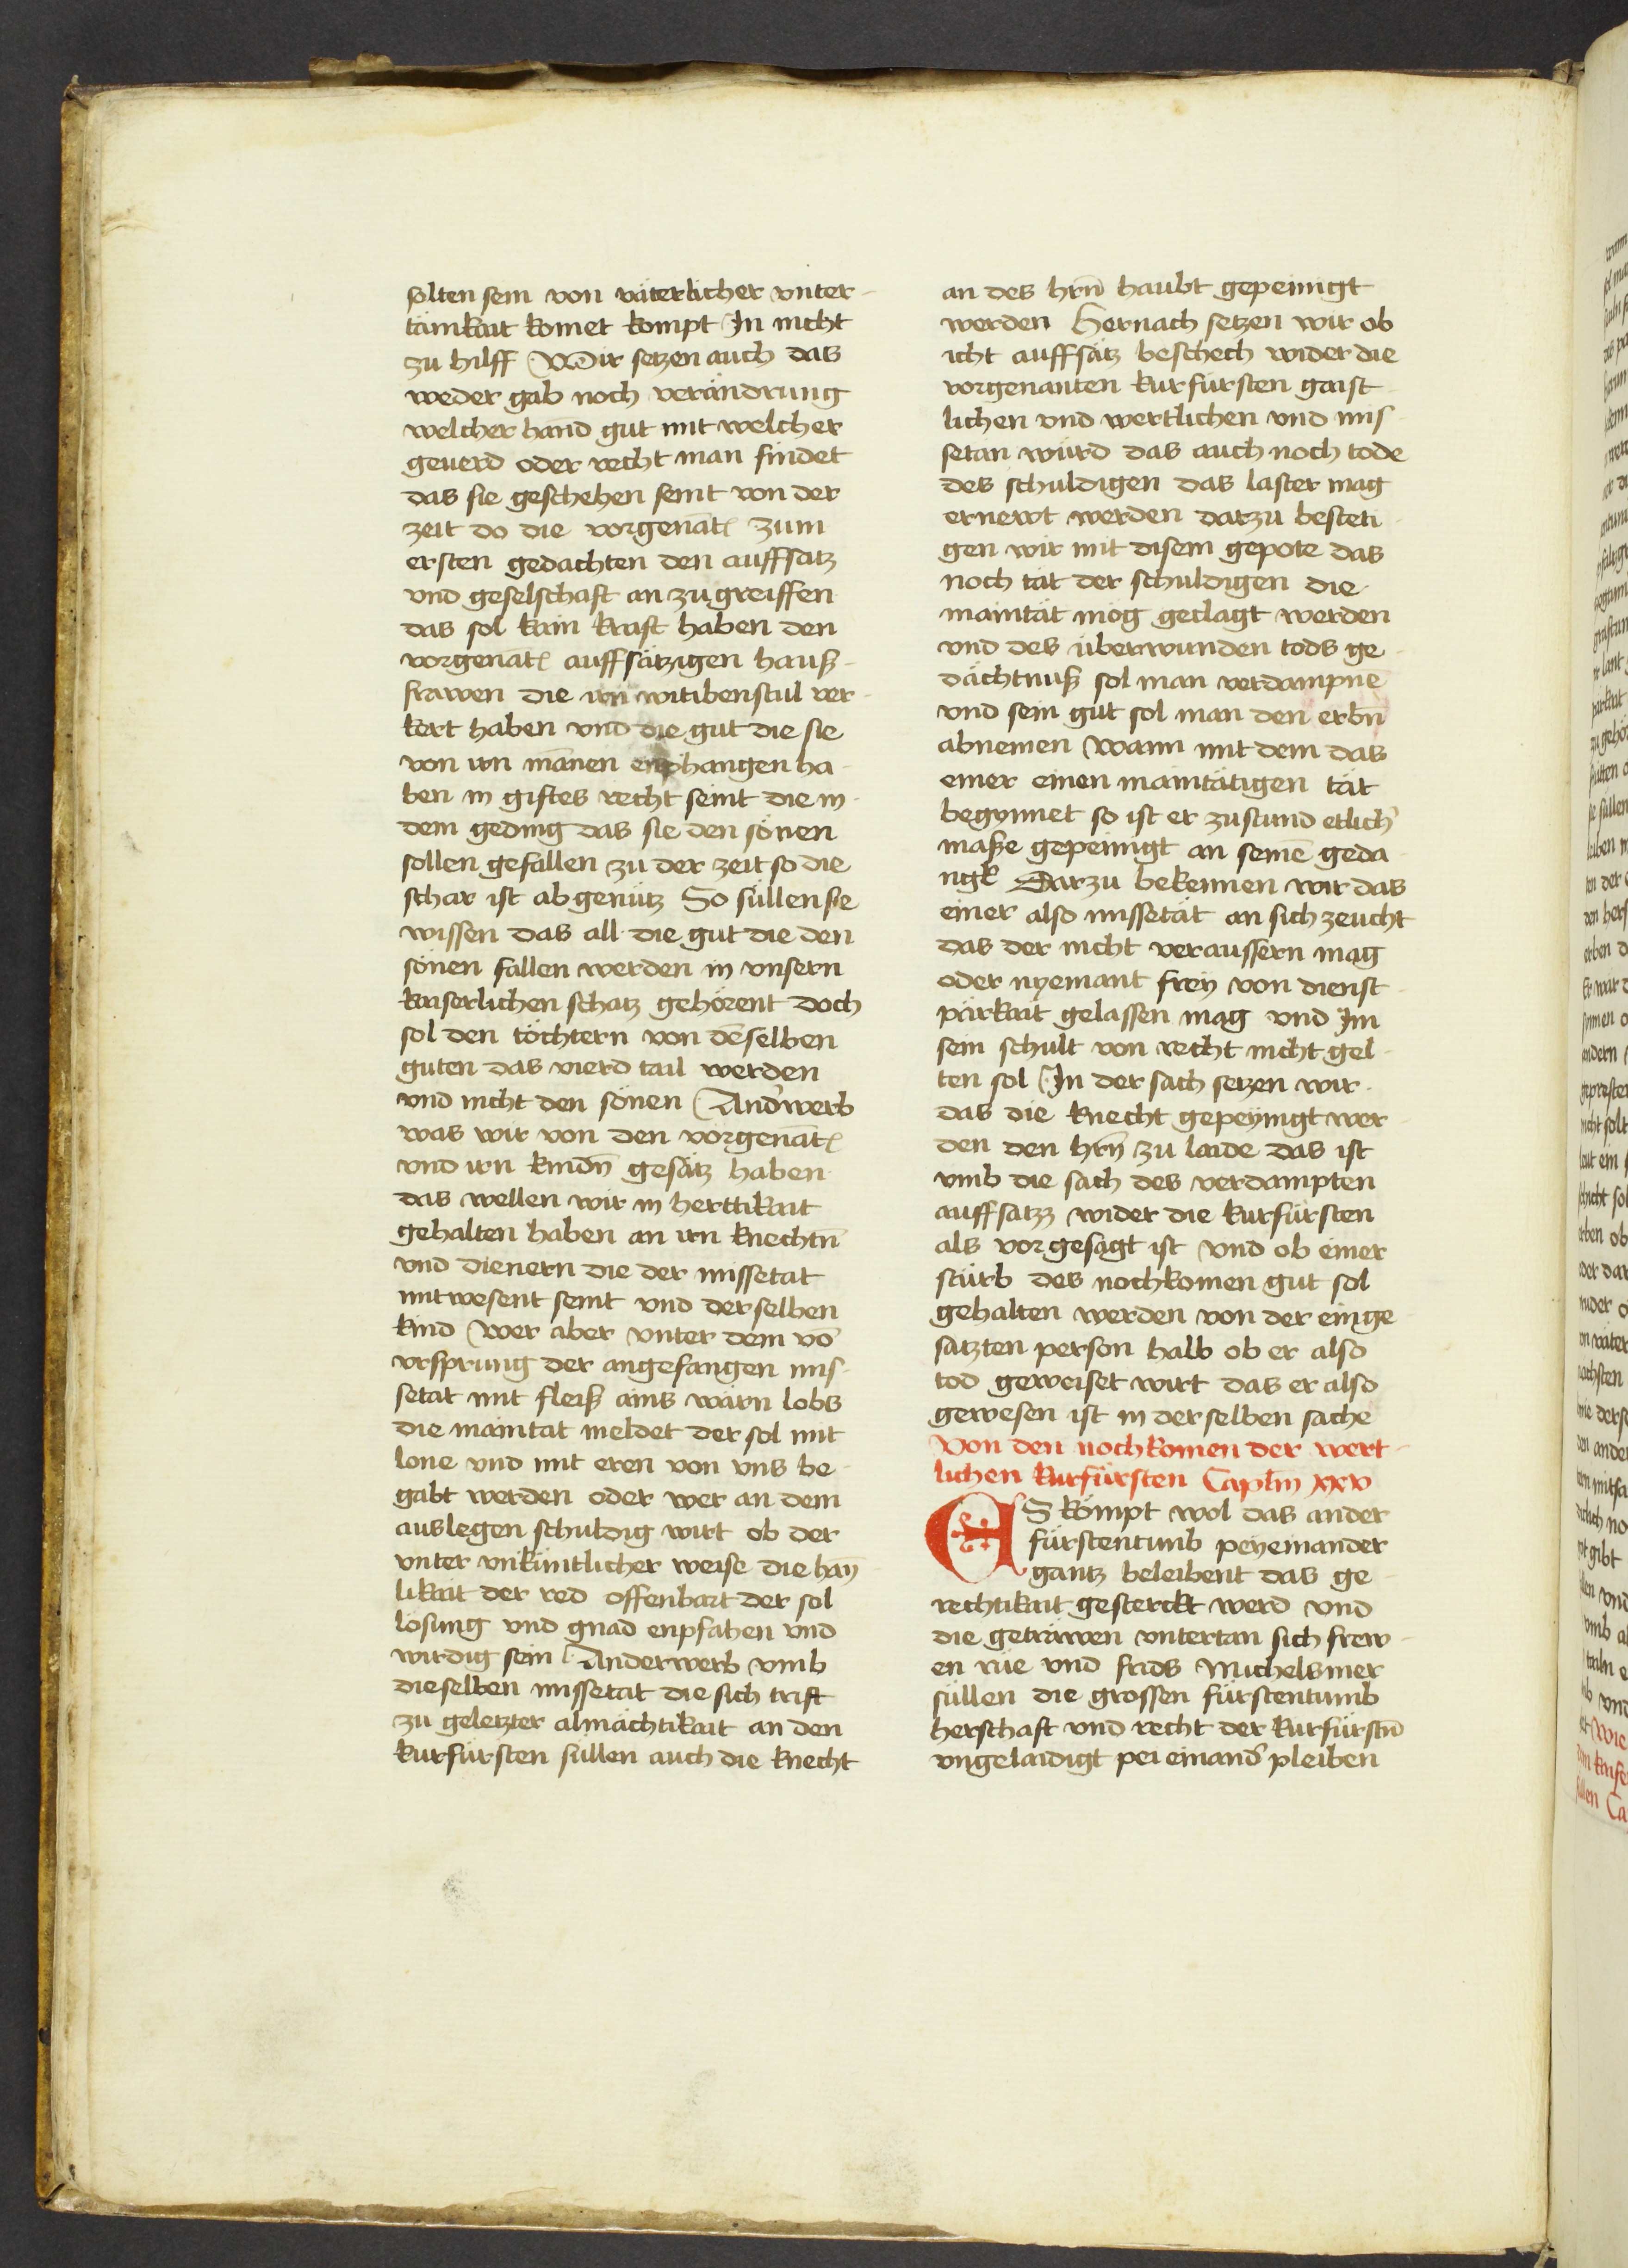 solten sein von väterlicher vnter-
tänikait komet kompt In nicht
zu hilff Wir setzen auch das
weder gab noch verändrung
welcher hand gut mit welcher
geuerd oder recht man findet
das sie geschehen seint von der
zeit do die vorgenāt zum
ersten gedachten den auffsatz
vnd geselschaft an zu greiffen
das sol kain kraft haben den
vorgenāt auffsätzigen hauß-
frawen die irn witibenstul ver-
kert haben vnd die gut die sie
von irn mānen enphangen ha-
ben in giftes recht seint die in-
dem geding das sie den sönen
sollen gefallen zu der zeit so die
schar ist abgenütz So süllen sie
wissen das all die gut die den
sönen fallen werden in vnsern
kaiserlichen schatz gehörent doch
sol den töchtern von dēselben
guten das vierd tail werden
vnd nicht den sönen And'werb
was wir von den vorgenāt
vnd irn kindn̄ gesätz haben
das wellen wir in herttikait
gehalten haben an irn knechtn̄
vnd dienern die der missetat
mitwesent seint vnd derselben
kind wer aber vnter dem vō
vrsprung der angefangen mis-
setat mit fleiß ains wärn lobs
die maintat meldet der sol mit
lone vnd mit eren von vns be-
gabt werden oder wer an dem
auslegen schuldig wirt ob der
vnter vnküntlicher weise die hay-
likait der red offenbart der sol
lösung vnd gnad enpfahen vnd
wirdig sein Anderwerb vmb
dieselben missetat die sich trift
zu geletzter almächtikait an den
kurfürsten süllen auch die knecht
an des hrn̄ haubt gepeinigt
werden Hernach setzen wir ob
icht auffsätz beschech wider die
vorgenanten kurfürsten gaist-
lichen vnd wertlichen vnd mis-
setan würd das auch noch tode
des schuldigen das laster mag
ernewt werden darzu besteti-
gen wir mit disem gepote das
noch tät der schuldigen die
maintät mög geclagt werden
vnd des überwunden tods ge-
dächtnuß sol man verdampne
vnd sein gut sol man den erbn̄
abnemen wann mit dem das
einer einen maintätigen tät
begynnet so ist er zustund etlich'
maße gepeinigt an seinē geda-
ngk Darzu bekennen wir das
einer also missetät an sich zeucht
das der nicht veraussern mag
oder nyemant frey von dienst-
pärkait gelassen mag vnd Im
sein schult von recht nicht gel-
ten sol In der sach setzen wir
das die knecht gepeynigt wer-
den den hrn̄ zu laide das ist
vmb die sach des verdampten
auffsatzz wider die kurfürsten
als vorgesagt ist vnd ob einer
stürb des nochkomen gut sol
gehalten werden von der einge-
satzten person halb ob er also
tod geweiset wirt das er also
gewesen ist in derselben sache
Von den nochkomen der wert-
lichen kurfürsten Caplm xxv
ES kömpt wol das ander
fürstentumb peyeinander
gantz beleibent das ge-
rechtikait gesterckt werd vnd
die geträwen vntertan sich frew-
en rüe vnd frids Michelsmer
süllen die grossen fürstentumb
herschaft vnd recht der kurfürstn̄
vngelaidigt pei einand' pleiben